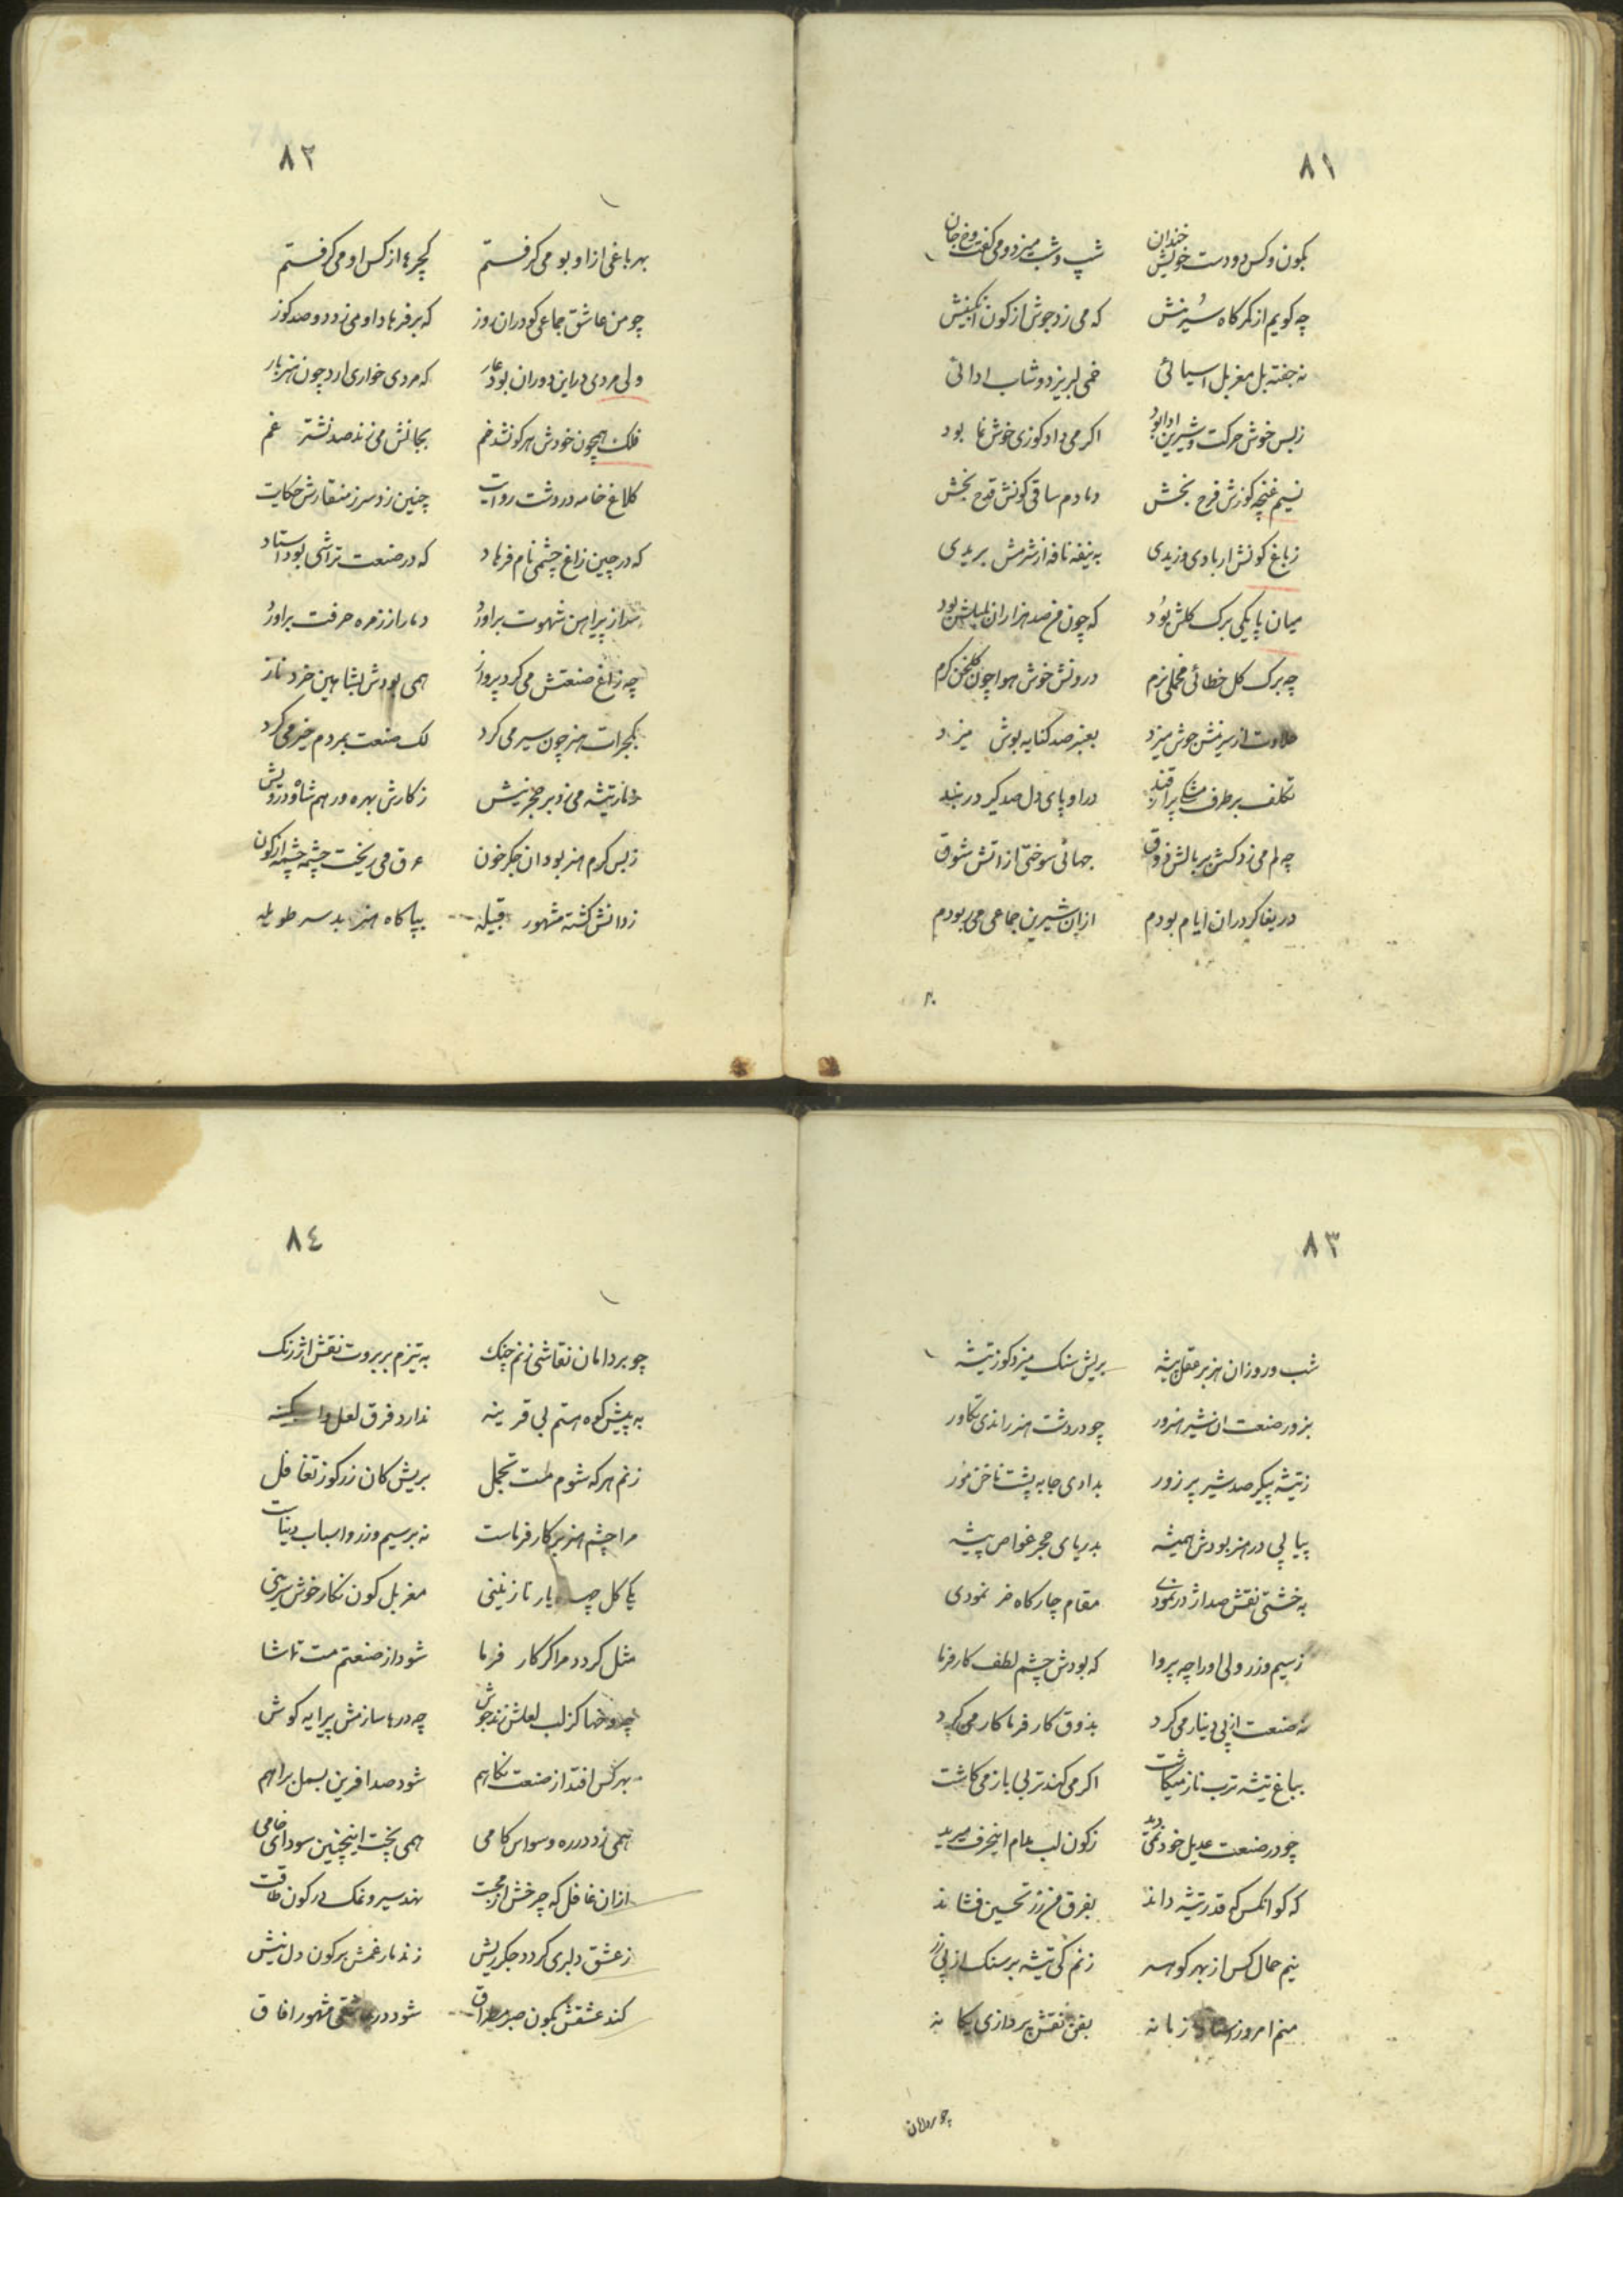 ٨١
بکون و کس دو دست خویش خندان شپ و شپ میزد و می گفت
چه کویم از کمرکاه سرینش که می زد جوش از کون انکبینش
نه جفته بل مغربل اسیائی خمی لبریز دوشاب ادائی
زبس خوش حرکت و شیرین ادا بود اکر می داد کوزی خوش نما بود
نسیم غنچه کوزش فرح بخش دمادم ساقی کونش قدح بخش
زباغ کونش ار بادی وزیدی به نیفه نافه از شرمش بریدی
میان پایکی برک کلش بود که چون من صد هزاران بلبلش بود
چه برک کل خطائی مخملی نرم درونش خوش هوا چون کلخن کرم
حلاوت از سرینش جوش میزد بعنبر صد کنایه بوش میزد
تکلف برطرف دراو پای دل صد کیر در بند
چه لم می زد کسش بر بالش ذوق جهانی سوختی از اتش شوق
دریغا کر دران ایام بودم ازان شیرین جماعی می ربودم
٨٢
بهر باغی ازاو بو می کرفتم از کس او می کرفتم
چو من عاشق جماعی کو دران روز که بر فرهاد او می زد دو صد کوز
ولی مردی دراین دوران بود عار که مردی خواری ارد چون هنر بار
فلک همچون خودش هرکو نشد خم بجانش می زند صد نشتر غم
کلاغ خامه در دشت روایت چنین زد سر ز منقارش حکایت
که در چین زاغ چشمی نام فرهاد که در صنعت تراشی بود استاد
شد از پیراهن شهوت براور دمار از زمره حرفت براور
چه زاغ صنعتش می کرد پرواز همی بودش بشاهین خرد ناز
بکجرات هنر چون سیر می کرد لک صنعت بمردم خیر می کرد
تیشه می زد بر حجر نیش زکارش بهره ور هم شاه و درویش
زبس کرم هنر بود ان جکر خون عرق می ریخت چشمه چشمه از کون
زدانش کشته مشهور قبیله بپاکاه هنر بد سر طویله
٨٣
شب و روز ان هژبر عقل پیشه بریش سنک میزد کوز تیشه
بزور صنعت ان شیر هنرور چو در دشت هنر راندی تکاور
زتیشه پیکر صد شیر پر زور بدادی جا به پشت ناخن مور
پیاپی در هنر بودش همیشه بدریای حجر غواص پیشه
به خشتی نقش صد اژدر نمودی مقام چارکاه خر نمودی
زسیم و زر ولی اورا چه پروا که بودش چشم لطف کارفرما
نه صنعت از پی دینار می کرد بذوق کارفرما کار می کرد
بباغ تیشه ترب ناز میکاشت اکر می کند تربی باز می کاشت
چو در صنعت عدیل خود نمی دید زکون لب مدام اینحرف میرید
که کو انکس که قدر تیشه داند بفرق من زر تحسین فشاند
نیم حمال کس از بهر کوهر زنم کی تیشه بر سنک از پی زر
منم امروز استاد زمانه بفن نقش پردازی یکانه
چو بردامان
٨٤
چو بر دامان نقاشی زنم چنک به تیزم بر بروت نقش ارژنک
به پیش کوه هستم بی قرینه ندارد فرق لعل و
زنم هرکه شوم مست تجمل بریش کان زر کوز تغافل
مرا چشم هنر بر کارفرماست نه بر سیم و زر و اسباب دنیاست
یکی کل یار نازنینی مغربل کون نکار خوش سرینی
مثل کردد مرا کر کارفرما شود از صنعتم مست تماشا
کز لب لعلش زند جوش چه درها سازمش پیرایه کوش
بهر کس افتد از صنعت نکاهم شود صد افرین بسمل براهم
همی زد در ره وسواس کامی همی پخت اینچنین سودای خامی
ازان غافل که چرخش از محبت نهد سیر و نمک در کون طاقت
زعشق دلبری کردد جکر ریش زند مار غمش بر کون دل نیش
کند عشقش بکون صبر شود در عاشقی مشهور افاق